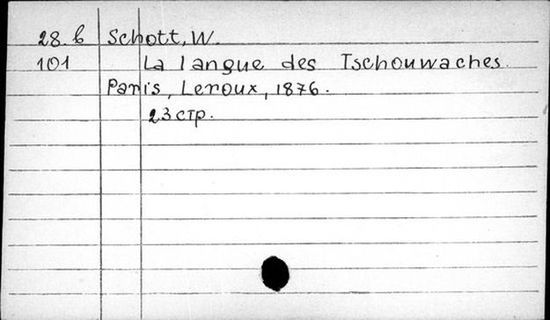 28.b Schott, W.
101 La langue des Tschouwaches.
Paris, Leroux, 1876.
23 стр.